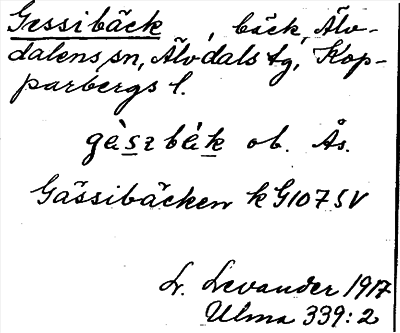 Gessibäck, bäck, Älv-
dalens sn, Älvdals tg, Kop-
parbergs l.
gàs̲zbák̲ ob. Ås.
Gässibäcken k G107 SV
L. Levander 1917
Ulma 339:2